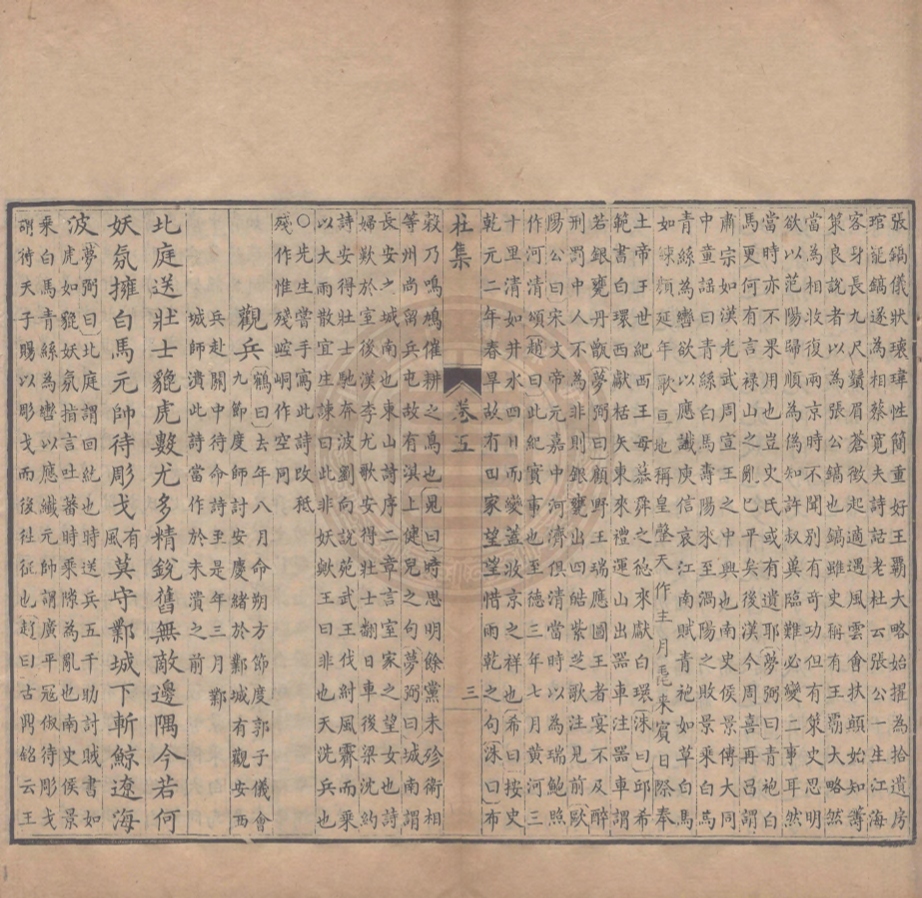 張鎬儀狀瓌瑋性簡重好王霸大略始擢為拾遺房
琯詆鎬遂為相蔡寬夫詩話老杜云張公一生江海
客身長九尺鬚眉蒼徵起適遇風雲會扶顛始知籌
策良說者以為張公鎬也鎬雖史稱有王霸大略然
當為相收復兩京時不聞别有奇功但有策史思明
欲以范陽歸順為偽知許叔冀臨難必變二事耳然
當時亦不果用也豈史氏或有遺耶夢弼曰青袍白
馬更何有言禄山之亂巳平矣後漢今周喜再吕謂
肅宗如漢光武周宣王之中興也南史侯景傳大同
中童謡曰青絲白馬壽陽來至渦陽之敗景乘白馬
青絲為轡欲以應讖庾信哀江南賦青袍如草白馬
如練顏延年歌亘地稱皇罄天作主月竁來賓日際奉
土帝王世紀西王母慕舜之德來獻白環洙曰邱希
範書白環西獻楛矢東來禮運山出器車注器車謂
若銀甕丹甑夢弼曰顧野王瑞應圖王者宴不及醉
刑罰中人不為非則銀甕出四皓紫芝歌注見前歐
陽公曰宋文帝元嘉中河濟俱清當時以為瑞鮑照
作河清頌趙曰此紀實事也至德三年七月黄河三
十里清如井水四日而變蓋收京之祥也希曰按史
乾元二年春旱故有田家望望惜雨乾之句洙曰布
杜集 卷五 三
穀乃鳴鳩催耕之鳥也晃曰時思明餘黨未殄衛相
等州尚留兵屯故有淇上健兒之句夢弼曰城南謂
長安之城南也東山詩序二章言室家之望女也詩
婦歎於室後漢李尤歌安得壯士翻日車後梁沈約
詩安得壯士馳奔波劉向說苑武王伐紂風霽而乘
以大雨散宜生諫曰此非妖歟王非也天洗兵也
○先生嘗手寫此詩改秪
殘作惟殘崆峒作空同
觀兵鶴曰去年八月命朔方節度郭子儀會
九節度師討安慶緒於鄴城有觀安西
兵赴關中待命詩至是年三月鄴
城師潰此詩當作於未潰之前
北庭送壯士貔虎數尤多精銳舊無敵邊隅今若何
妖氛擁白馬元帥待彫戈有風莫守鄴城下斬鯨遼海
波夢弼曰北庭謂回紇也時送兵五千助討賊書如
虎如貔妖氛指言吐蕃時乘隙為亂也南史侯景
乘白馬青絲為轡以應讖元帥謂廣平冠俶待彫戈
胡待天子賜以彫戈而後徃征也趙曰古鼎銘云王